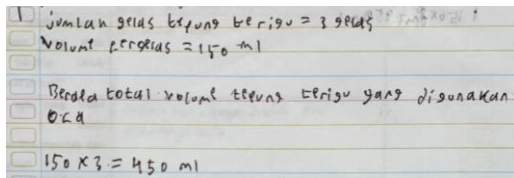 1 jumlah gelas tepung terigu = 3 gelas
Volume pergelas = 150 ml
Berapa total volume tepung terigu yang digunakan
oca
150 x 3 = 450 ml